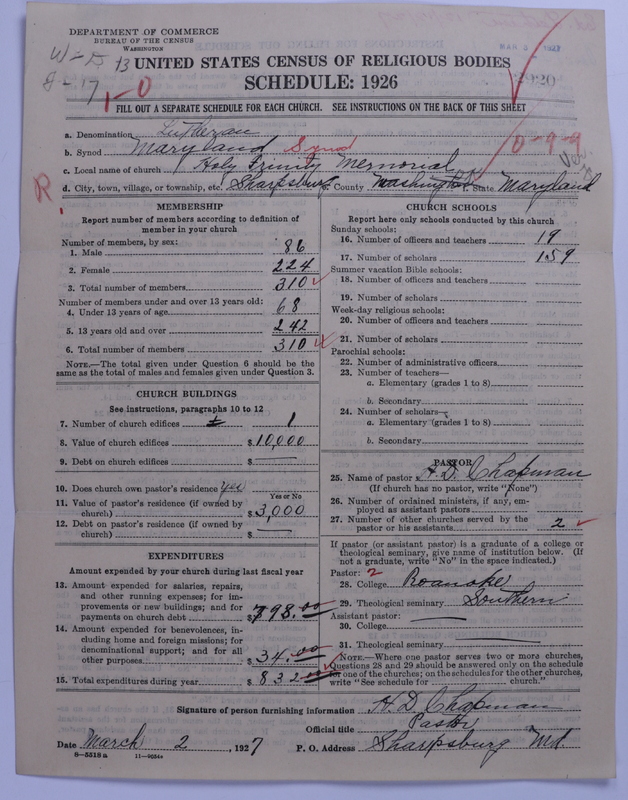 DEPARTMENT OF COMMERCE
BUREAU OF THE CENSUS
WASHINGTON
W-D 13
8-17
1-0
UNITED STATES CENSUS OF RELIGIOUS BODIES
SCHEDULE: 1926
FILL OUT A SEPARATE SCHEDULE FOR EACH CHURCH. SEE INSTRUCTIONS ON THE BACK OF THIS SHEET
a. Denomination Lutheran
b. Synod Maryland Synod
0-9-9
c. Local name of church Holy Trinity Memorial
R
d. City, town, village, or township, etc. Sharpsburg County Washington State Maryland
MEMBERSHIP
Report number of members according to definition of
member in your church
Number of members, by sex:
1. Male 86
2. Female 224
3. Total number of members 310
Number of members under and over 13 years old:
4. Under 13 years of age 68
5. 13 years old and over 242
6. Total number of members 310
NOTE.—The total given under Question 6 should be
same as the total of males and females given under Question 3.
CHURCH BUILDINGS
See instructions, paragraphs 10 to 12
7. Number of church edifices 1
8. Value of church edifices $10,000
9. Debt on church edifices $ —
10. Does church own pastor's residence yes
Yes or No
11. Value of pastor's residence (if owned by
church) $3,000
12. Debt on pastor's residence (if owned by
church) $ —
EXPENDITURES
Amount expended by your church during last fiscal year
13. Amount expended for salaries, repairs,
and other running expenses; for im-
provements or new buildings; and for
payments on church debt $798.00
14. Amount expended for benevolences, in-
cluding home and foreign missions; for
denominational support; and for all
other purposes $34.00
15. Total expenditures during year $832.00
CHURCH SCHOOLS
Report here only schools conducted by this church
Sunday schools:
16. Number of officers and teachers 19
17. Number of scholars 159
Summer vacation Bible schools:
18. Number of officers and teachers
19. Number of scholars
Week-day religious schools:
20. Number of officers and teachers
21. Number of scholars
Parochial schools:
22. Number of administrative officers
23. Number of teachers—
a. Elementary (grades 1 to 8)
b. Secondary
24. Number of scholars—
a. Elementary (grades 1 to 8)
b. Secondary
PASTOR
25. Name of pastor H. D. Chapman
(If church has no pastor, write "None")
26. Number of ordained ministers, if any, em-
ployed as assistant pastors
27. Number of other churches served by the
pastor or his assistants 2
If pastor (or assistant pastor) is a graduate of a college or
theological seminary, give name of institution below. (If
not a graduate, write "No" in the space indicated.)
Pastor: 2
28. College Roanoke
29. Theological seminary Southern
Assistant pastor: —
30. College
31. Theological seminary —
NOTE.—Where one pastor serves two or more churches,
questions 28 and 29 should be answered only on the schedule
for one of the churches; on the schedules for the other churches,
write "See schedule for church."
Signature of person furnishing information H. D. Chapman
Official title Pastor
Date March 2, 1927 P. O. Address Sharpsburg Md.
8-5518a 11-9654a